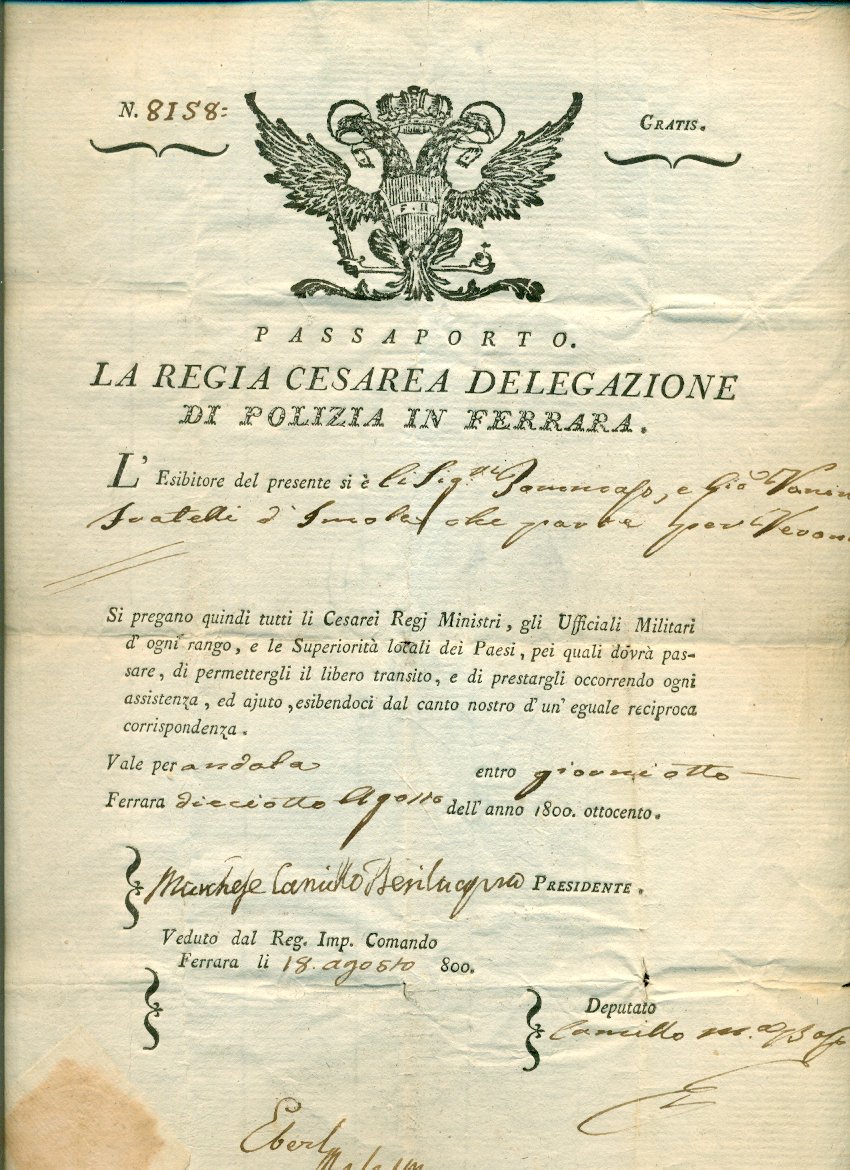 N. 8158:
GRATIS.
F. II
PASSAPORTO.
LA REGIA CESAREA DELEGAZIONE
DI POLIZIA IN FERRARA.
L' Esibitore del presente si è li Sig.ri Tommaso, e Gio
Fratelli d'Imola che parte per
Si pregano quindi tutti li Cesarei Regj Ministri, gli Ufficiali Militari
d'ogni rango, e le Superiorità locali dei Paesi, pei quali dovrà pas-
sare, di permettergli il libero transito, e di prestargli occorrendo ogni
assistenza, ed ajuto, esibendoci dal canto nostro d'un'eguale reciproca
corrispondenza.
Vale per andata entro giorni otto
Ferrara dieciotto Agosto dell'anno 1800. ottocento.
Marchese Camillo Bevilacqua PRESIDENTE.
Veduto dal Reg. Imp. Comando
Ferrara li 18. agosto 800.
Deputato
Camillo
Eberl